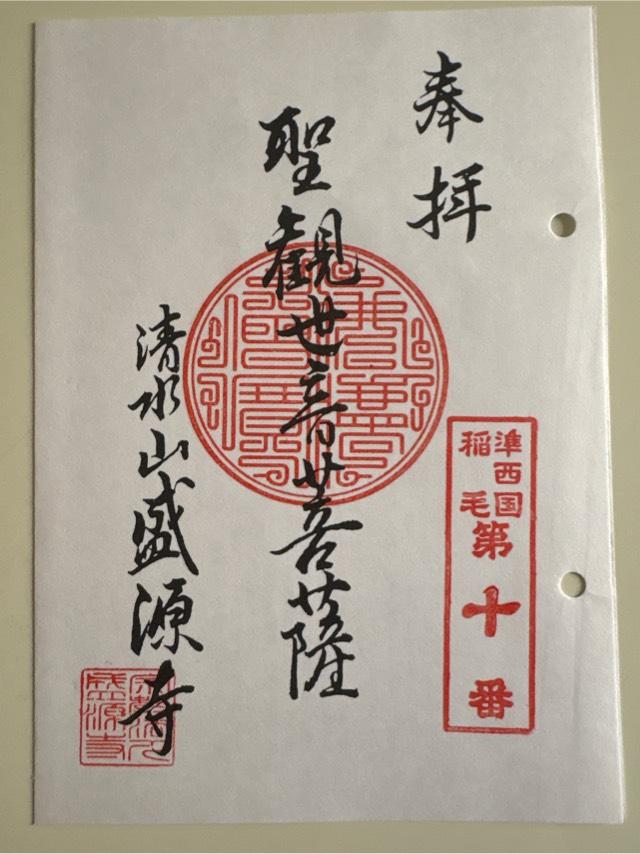 奉拝
聖観世音菩薩
清水山盛源寺
準西国
稲毛
第十番